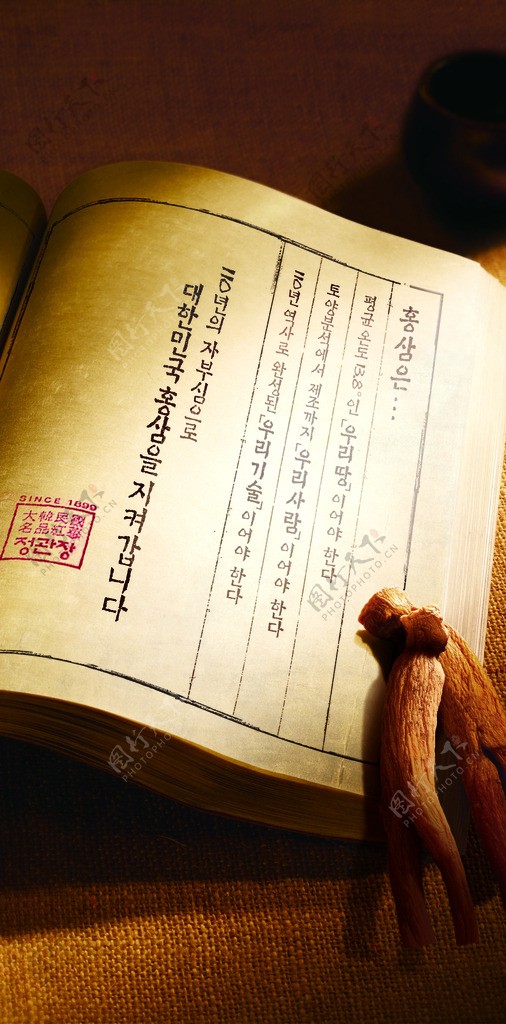 홍삼은...
평균온도 13.8°인 「우리 땅」이어야 한다
토양분석에서 제조까지 「우리 사람」이어야 한다
一一0년 역사로 완성된 「우리 기술」이어야 한다
一一0년의 자부심으로
대한민국 홍삼을 지켜갑니다
SINCE 1899
大韓民國
名品紅蔘
정관장